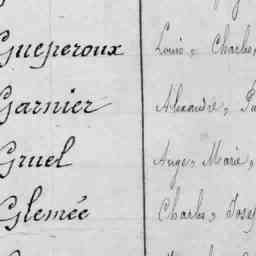 Gueperoux Louis, Charles,
Garnier Alexandre,
Gruel Ange, Marie,
Glemée Charles, Josep